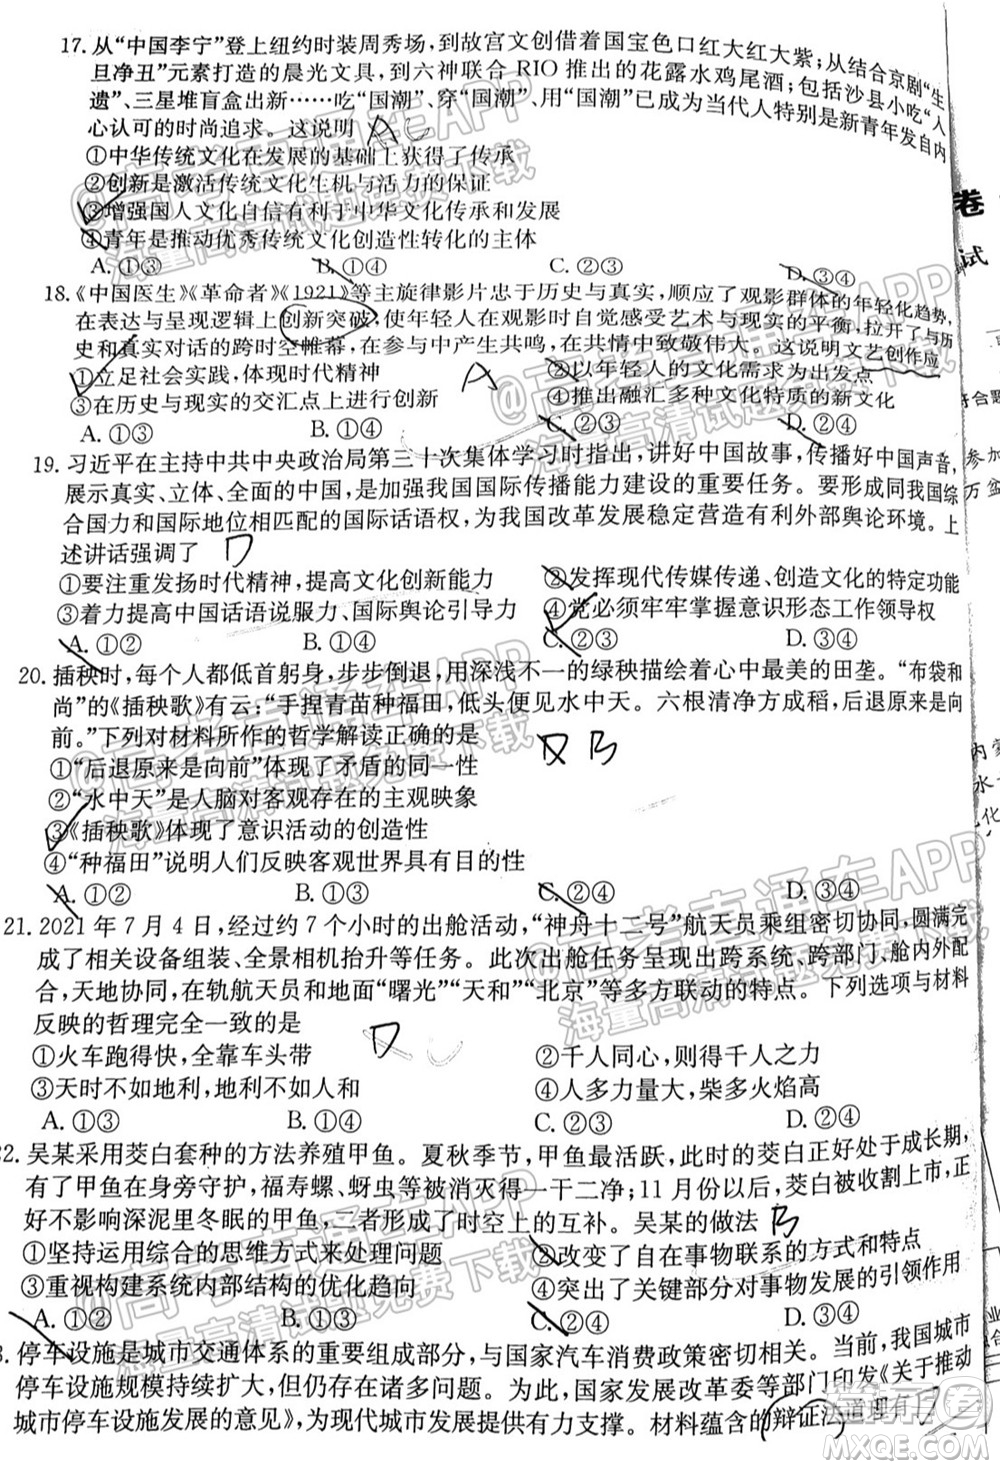 17. 从“中国李宁”登上纽约时装周秀场,到故宫文创借着国宝色口红大红大紫;从结合京剧“生
旦净丑”元素打造的晨光文具,到六神联合 RIO 推出的花露水鸡尾酒;包括沙县小吃“人
遗”、三星堆盲盒出新……吃“国潮”、穿“国潮”、用“国潮”已成为当代人特别是新青年发自内
心认可的时尚追求。这说明
①中华传统文化在发展的基础上获得了传承
②创新是激活传统文化生机与活力的保证
③增强国人文化自信有利于中华文化传承和发展
④青年是推动优秀传统文化创造性转化的主体
A. ①③ B. ①④ C. ②③ D. ②④
18.《中国医生》《革命者》《1921》等主旋律影片忠于历史与真实,顺应观影群体的年轻化趋势,
在表达与呈现逻辑上创新突破,使年轻人在观影时自觉感受艺术与现实的平衡,拉开了与历
史和真实对话的跨时空帷幕,在参与中产生共鸣,在共情中致敬伟大。这说明文艺创作应
①立足社会实践,体现时代精神 ②以年轻人的文化需求为出发点
③在历史与现实的交汇点上进行创新 ④推出融汇多种文化特质的新文化
A. ①③ B. ①④ C. ②③ D. ②④
19. 习近平在主持中共中央政治局第三十次集体学习时指出,讲好中国故事,传播好中国声音,
展示真实、立体、全面的中国,是加强我国国际传播能力建设的重要任务。要形成同我国综
合国力和国际地位相匹配的国际话语权,为我国改革发展稳定营造有利外部舆论环境。上
述讲话强调了 D
①要注重发扬时代精神,提高文化创新能力 ②发挥现代传媒传递、创造文化的特定功能
③着力提高中国话语说服力、国际舆论引导力 ④党必须牢牢掌握意识形态工作领导权
A. ①② B. ①④ C. ②③ D. ③④
20. 插秧时,每个人都低首躬身,步步倒退,用深浅不一的绿秧描绘着心中最美的田垄。“布袋和
尚”的《插秧歌》有云:“手捏青苗种福田,低头便见水中天。六根清净方成稻,后退原来是向
前。”下列对材料所作的哲学解读正确的是
①“后退原来是向前”体现了矛盾的同一性
②“水中天”是人脑对客观存在的主观映象
③《插秧歌》体现了意识活动的创造性
④“种福田”说明人们反映客观世界具有目的性
A. ①② B. ①③ C. ②④ D. ③④
21. 2021 年 7 月 4 日,经过约 7 个小时的出舱活动,“神舟十二号”航天员乘组密切协同,圆满完
成了相关设备组装、全景相机抬升等任务。此次出舱任务呈现出跨系统、跨部门、舱内外配
合,天地协同,在轨航天员和地面“曙光”“天和”“北京”等多方联动的特点。下列选项与材料
反映的哲理完全一致的是
①火车跑得快,全靠车头带 ②千人同心,则得千人之力
③天时不如地利,地利不如人和 ④人多力量大,柴多火焰高
A. ①③ B. ①④ C. ②③ D. ②④
22. 吴某采用茭白套种的方法养殖甲鱼。夏秋季节,甲鱼最活跃,此时的茭白正好处于成长期,
有了甲鱼在身旁守护,福寿螺、蚜虫等被消灭得一干二净;11 月份以后,茭白被收割上市,正
好不影响深泥里冬眠的甲鱼,二者形成了时空上的互补。吴某的做法 B
①坚持运用综合的思维方式来处理问题 ②改变了自在事物联系的方式和特点
③重视构建系统内部结构的优化趋向 ④突出了关键部分对事物发展的引领作用
A. ①② B. ①③ C. ②④ D. ③④
3. 停车设施是城市交通体系的重要组成部分,与国家汽车消费政策密切相关。当前,我国城市
停车设施规模持续扩大,但仍存在诸多问题。为此,国家发展改革委等部门印发《关于推动
城市停车设施发展的意见》,为现代城市发展提供有力支撑。材料蕴含的辩证法道理有
卷
试
@高考直通车APP
海量高清试题免费下载
MXQE.COM